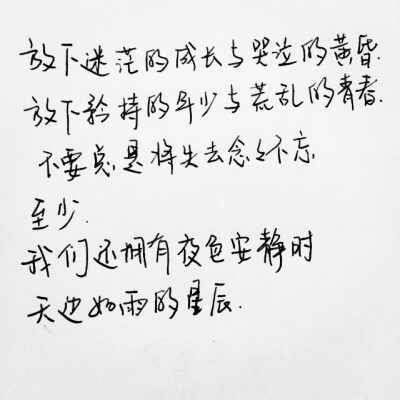 放下迷茫的成长与哭泣的黄昏.
放下矜持的年少与荒乱的青春.
不要总是将失去念念不忘
至少.
我们还拥有夜色安静时
天边如雨的星辰.